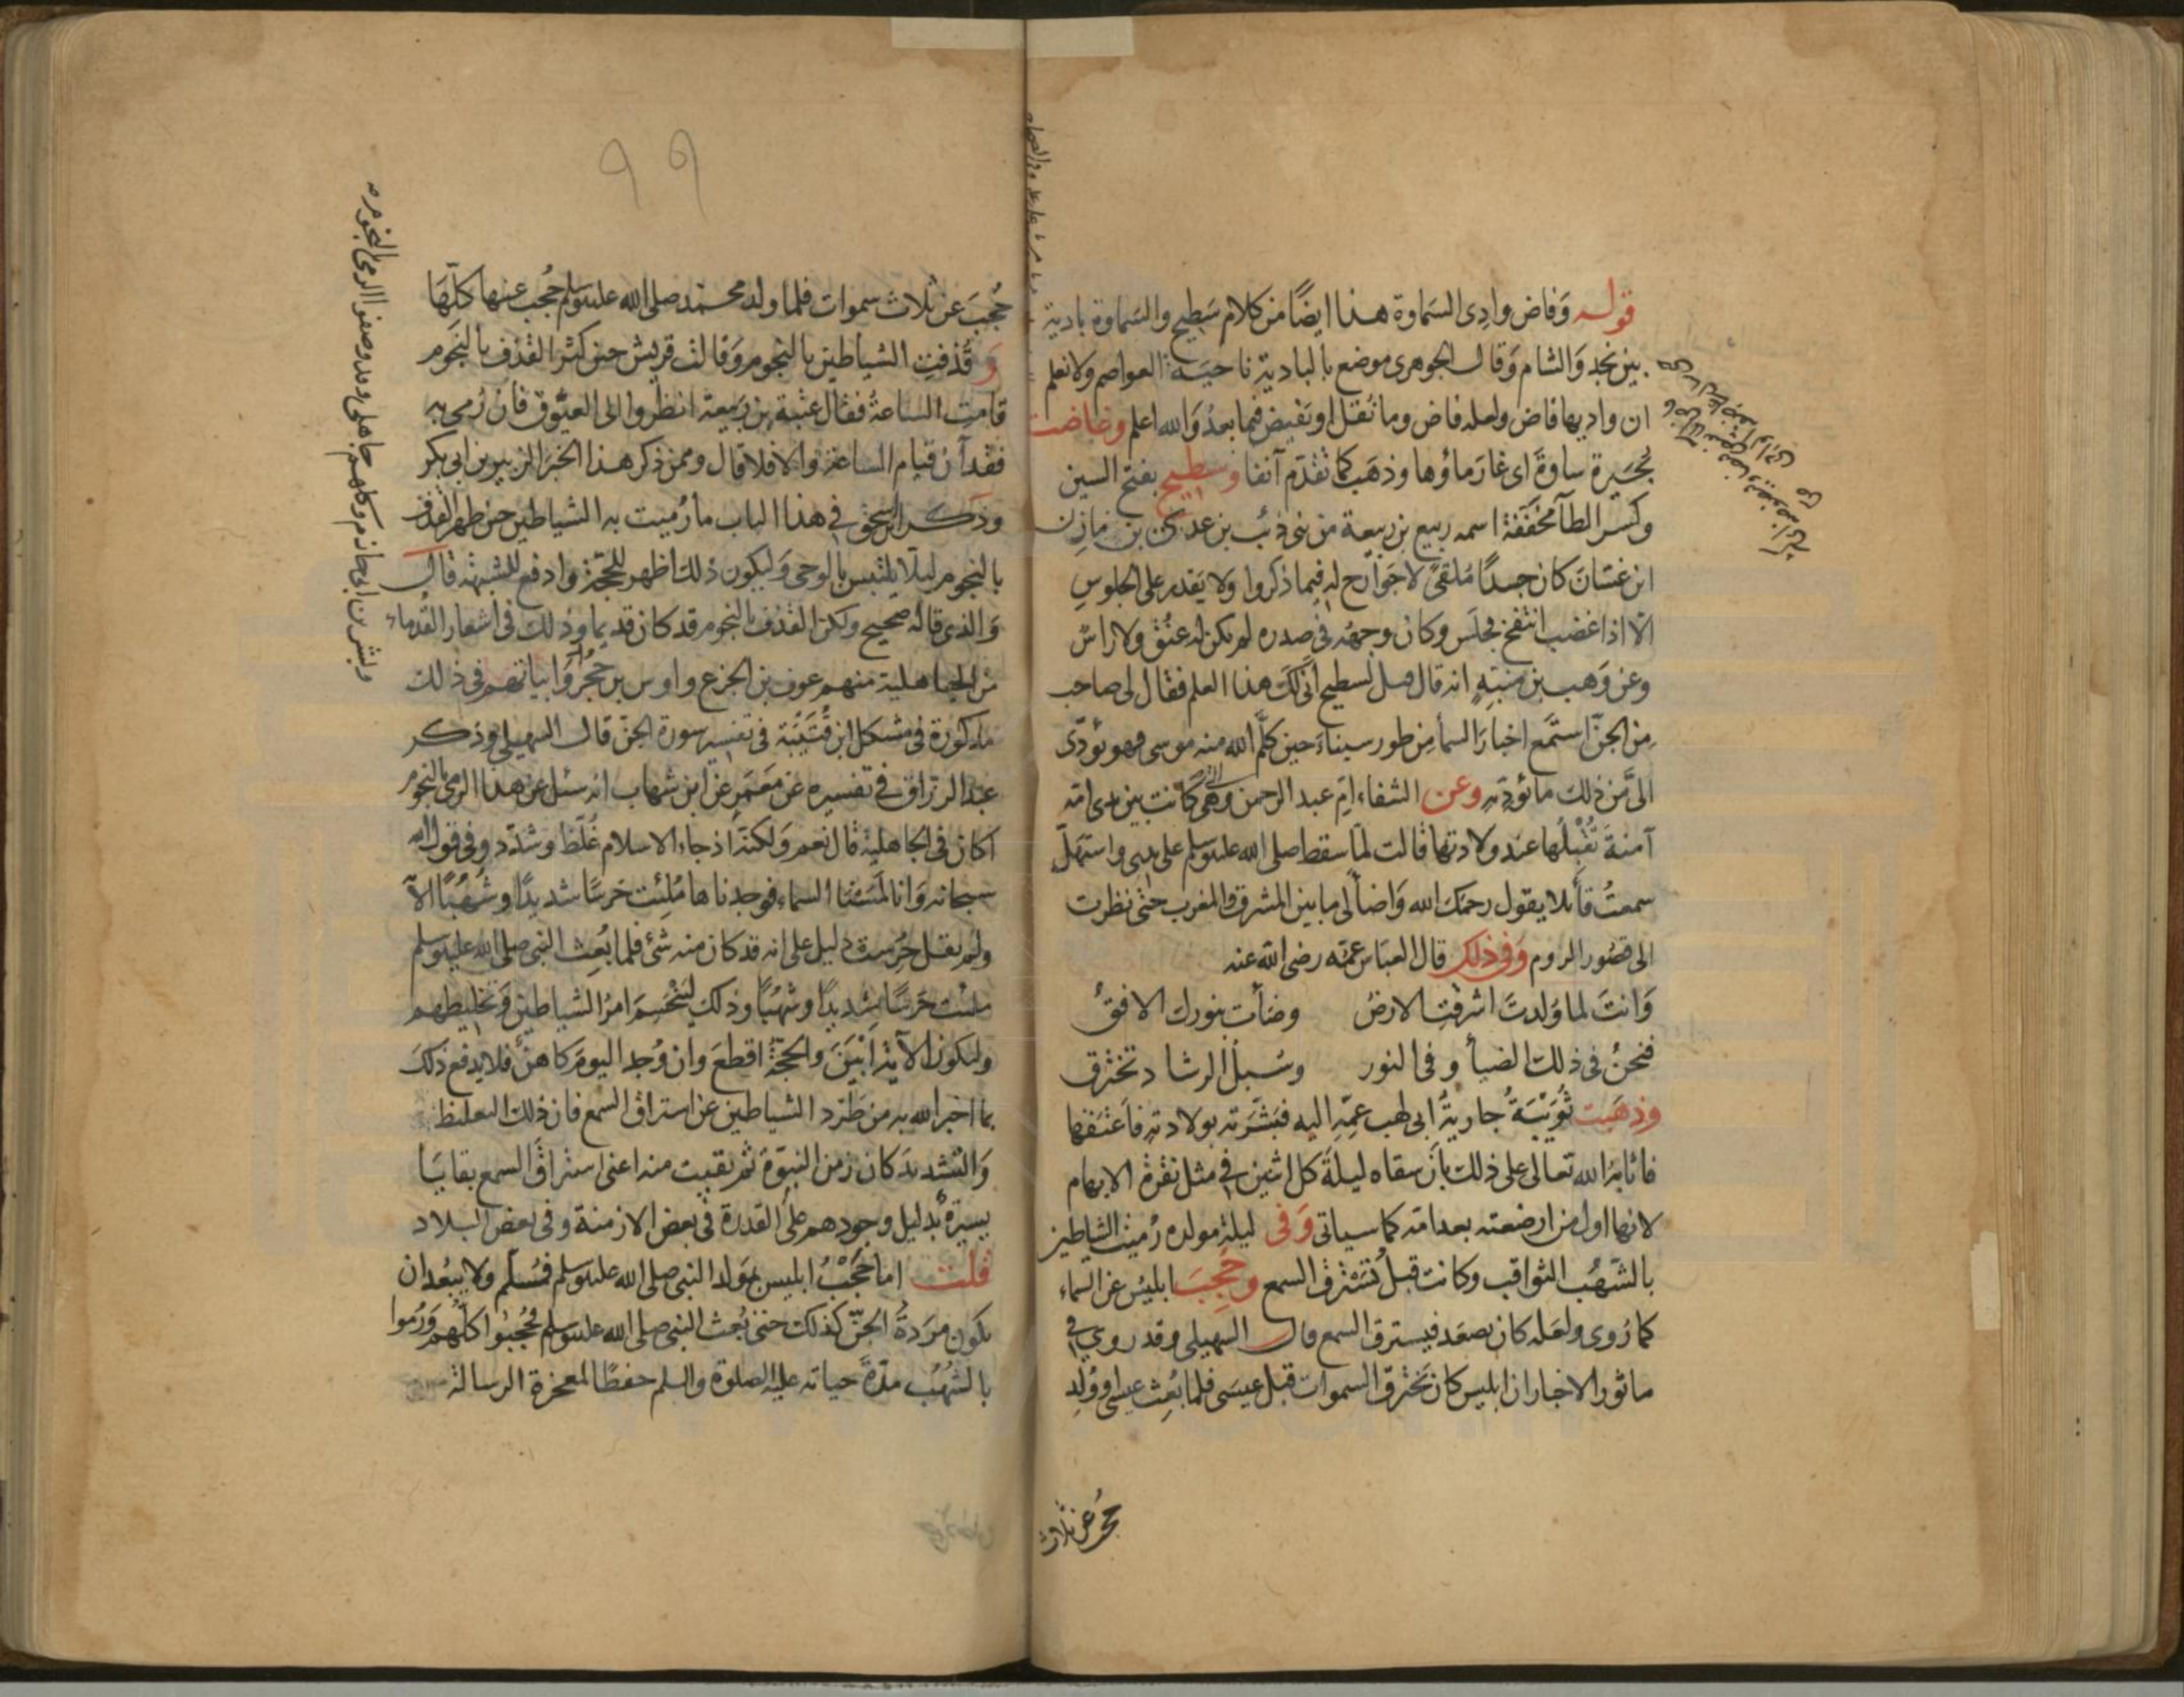 قوله وَفاض وادِى السَماوة هذا ايضًا من كلام سَطِيح والسَماوة بادية
بين نجد وَالشام وَقال الجوهرى موضع بالبادية ناحيَة العواصم ولا نعلم
ان واديها فاض ولعله فاض وما نُقل او يَفيض فيما بعدُ وَالله اعلم وغاضت
بُحَيرة ساوةَ اى غارَ ماؤها وذهَب كما تقدّم آنفا وسطيح بفتح السين
وكسر الطآ مخفّفة اسمه ربيع بن ربيعة من بنى ذئب بن عدى بن مازن
ابن غسّان كان جسدًا مُلقىً لا جَوارح له فيما ذكروا ولا يَقدر على الجلوسِ
الّا اذا غضب انتفخ فجلَس وكان وجهُه فى صدره لم يكن له عنُقٌ ولا راسٌ
وعن وَهب بن منبّهٍ انه قال قيل لسطيح أنّى لك هذا العلم فقال لى صاحب
مِن الجنّ استَمع اخبارَ السمآ مِن طور سيناءَ حين كلَّم الله منه موسى فهو يؤدّى
الىَّ من ذلك ما يؤدّيهِ وعن الشفاء امِّ عبد الرحمن وهى كانت بين يدى امّه
آمنةَ تُقْبلُها عند ولادتها قالت لمّا سقط صلى الله عليه وسلم على يدى واستهلّ
سمعتُ قائلا يقول رحمَك الله وَاضآ لى ما بين المشرق والمغرب حتى نظرت
الى قصُور الروم وَفى ذلك قال العبّاس عمّه رضى الله عنه
وَانتَ لما وُلدتَ اشرقتِ الارضُ وضآت بنورك الافقُ
فنحنُ فى ذلك الضيآ وفى النور وسُبلَ الرشاد تخترق
وذهبت ثُوَيْبَةُ جاريةُ ابى لهب عمِّهِ اليه فبَشّرَته بولادتهِ فاعتقها
فاثابه الله تعالى على ذلك بأن سقاه ليلةَ كل اثنين فى مثل نقرة الابهام
لانها اول من ارضعته بعد امّه كما سياتى وَفى ليلةِ مولده رُميت الشياطين
بالشّهُب الثواقب وكانت قبلُ تَسْترق السمع وحُجِبَ ابليسُ عن السماء
كما رُوى ولعله كان يصعَد فيسترق السمع قال السهيلى وقد روى فى
ماثور الاخبار ان ابليس كان يَخترق السموات قبل عيسَى فلما بُعِث عيسى او وُلِد
حُجب عن ثلاث
حُجبَ عن ثلاث سموات فلما ولد محمّد صلى الله عليه وسلم حُجب عنها كلّهَا
وَقُذفت الشياطين بالنجوم وَقالت قريش حين كثر القذف بالنجوم
قامت الساعةُ فقال عتبة بن ربيعة انظُروا الى العيّوق فان رُمى به
فقد آن قيام الساعة والا فلا قال وممن ذكر هذا الخبر الزبير بن ابى بكر
وذكر ابن اسحٰق فى هذا الباب ما رُميت به الشياطين حين ظهر القذف
بالنجوم ليلّا يلتبس بالوحى وَليكون ذلك اظهر للحجّة وادفع للشبهة قال
وَالذى قاله صحيح ولكن القذف بالنجوم قد كان قديما وذلك فى اشعار القُدماء
من الجاهلية منهم عوف بن الجزع واوس بن حُجُر وَابياتهم فى ذلك
مذكورة فى مشكل ابن قُتَيْبَة فى تفسير سورة الجنّ قال السهيلى وذكر
عبد الرزاق فى تفسيره عن مَعمَر عن ابن شهاب انه سئل عن هذا الرمى بالنجوم
اكان فى الجاهلية قال نعم وَلكنّه اذ جاء الاسلام غُلّظ وشُدّد وفى قول الله
سبحانه وَانا لمَسْنا السماء فوجدناها مُلِئت حَرسًا شديدًا وشُهُبًا الآ
ولم يقل حُرِست دليل على انه قد كان منه شئ فلما بُعِث النبى صلى الله عليه وسلم
ملئت حَرسًا شديدًا وشهُبًا وذلك لينْحسِمَ امرُ الشياطين وَتخليطهم
وليكون الآية ابْيَنَ والحجّة اقطعَ وان وُجد اليوم كاهنٌ فلا يدفع ذلك
بما اخبر الله به من طَرد الشياطين عن استراق السمع فان ذلك التغليظ
وَالتشديد كان زمن النبوّة ثم بقيت منه اعنى استراقَ السمع بقايَا
يسيرةٌ بدليل وجودهم على القدرة فى بعض الازمنة وفى بعض البلاد
قلت اما حَجْبُ ابليس بمولد النبى صلى الله عليه وسلم فمُسلّم ولا يبعُد ان
يكون مرَدةُ الجنّ كذلك حتى بُعث النبى صلى الله عليه وسلم فحُجِبُوا كلّهم وَرُموا
بالشُهُب مدّةَ حياته عليه الصلوة والسلم حفظًا لمعجزة الرسالة
وبشر بن ابى حازم وكلهم جاهلى وقد وصفوا الرمى بالنجوم
٩٩